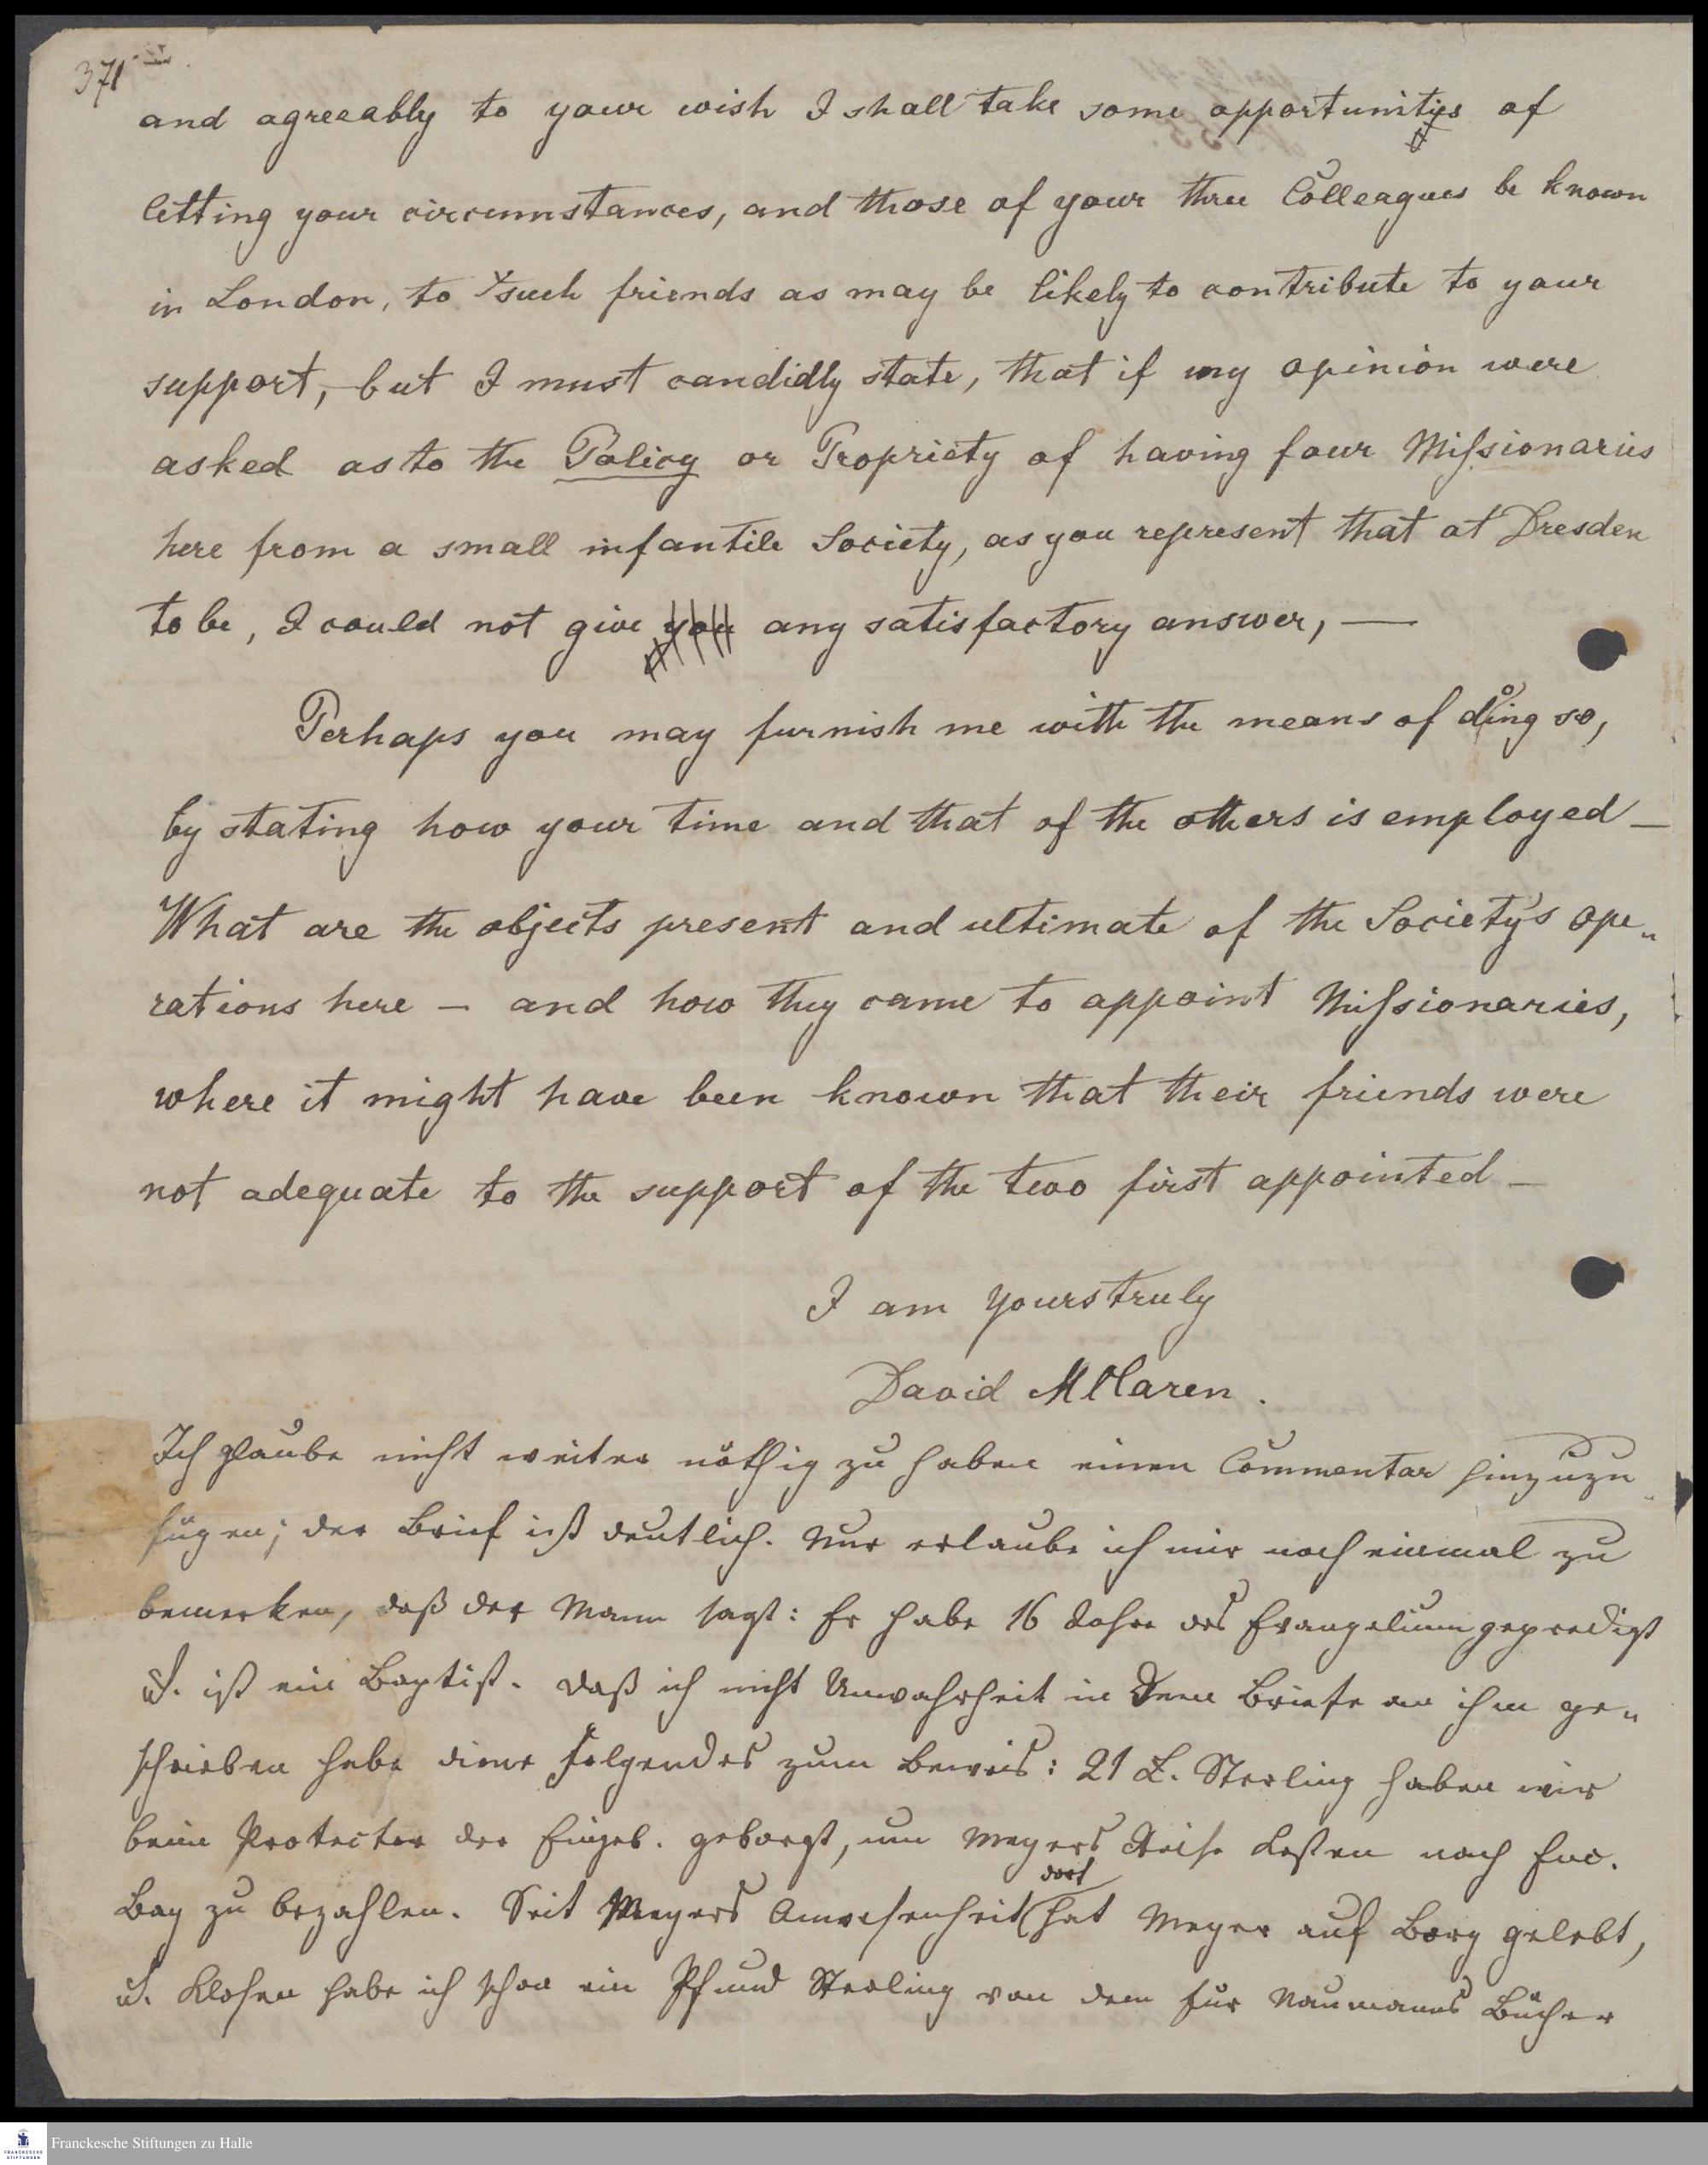 371
and agreeably to your wish I shall take some opportunities of
letting your circumstances, and those of your three Colleagues be known
in London, to such friends as may be likely to contribute to your
support, – but I must candidly state, that if my opinion were
asked as to the Policy or Propriety of having four Missionaries
here from a small infantile Society, as you represent that at Dresden
to be, I could not give you any satisfactory answer, —
Perhaps you may furnish me with the means of doing so,
by stating how your time and that of the others is employed –
What are the objects present and ultimate of the Society's ope„
rations here – and how they came to appoint Missionaries,
where it might have been known that their friends were
not adequate to the support of the two first appointed –
I am yours truly
David McLaren.
Ich glaube nicht weiter nöthig zu haben einen Commentar hinzuzu„
fügen; der Brief ist deutlich. Nur erlaube ich mir noch einmal zu
bemerken, daß der Mann sagt: Er habe 16 Jahre das Evangelium gepredigt
u. ist ein Baptist. Daß ich nicht Unwahrheit in dem Briefe an ihm ge„
schrieben habe diene folgendes zum Beweis: 21 £. Sterling haben wir
beim Protector der Eingeb. geborgt, um Meyers Reise Kosten nach Enc.
dort
Bay zu bezahlen. Seit Meyers Anwesenheit hat Meyer auf Borg gelebt,
u. Klosen habe ich schon ein Pfund Sterling von dem für Naumanns Bücher
Franckesche Stiftungen zu Halle
FRANCKESCHE
STIFTUNGEN